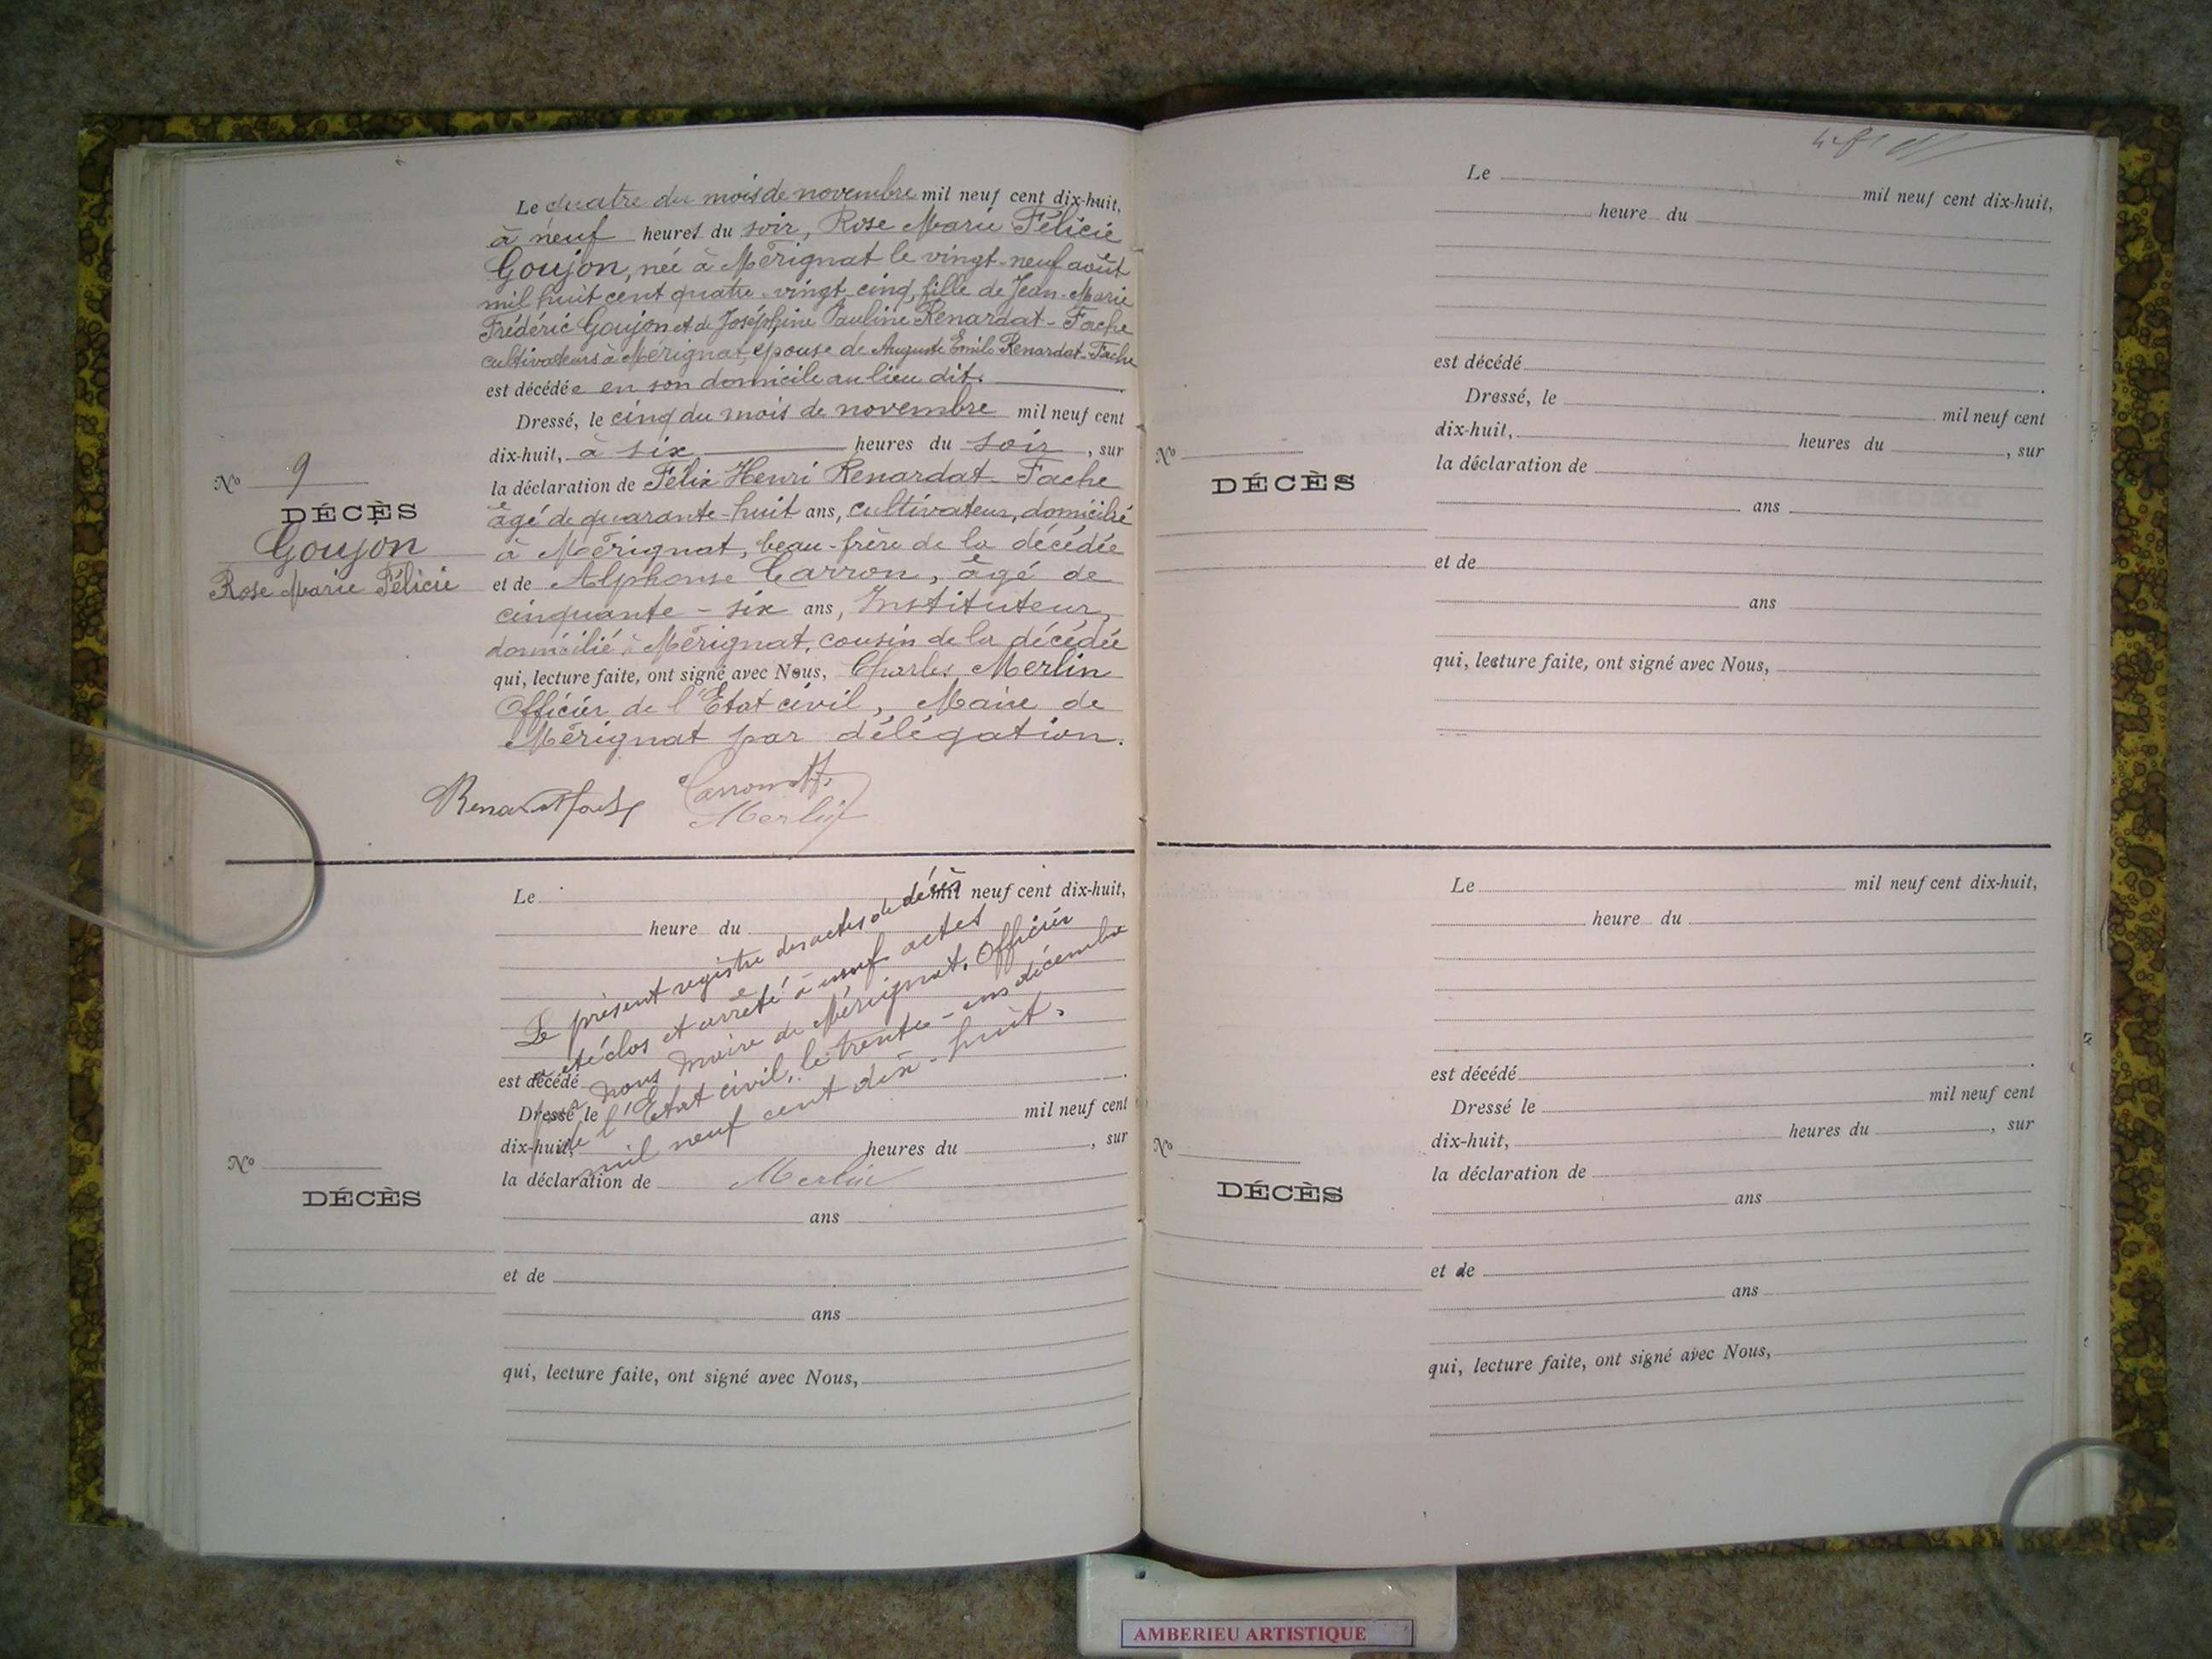 Le quatre du mois de novembre mil neuf cent dix-huit,
à neuf heures du soir, Rose Marie Félicie
Goujon, née à Mérignat le vingt-neuf août
mil huit cent quatre-vingt cinq, fille de Jean-Marie
Frédéric Goujon et de Joséphine Pauline Renardat-Fache
cultivateurs à Mérignat, épouse de Auguste Emile Renardat-Fache
est décédée en son domicile au lieu dit.
Dressé, le cinq du mois de novembre mil neuf cent
dix-huit, à six heures du soir, sur
la déclaration de Félix Henri Renardat-Fache
âgé de quarante-huit ans, cultivateur, domicilié
à Mérignat, beau-frère de la décédée
et de Alphonse Carron, âgé de
cinquante-six ans, Instituteur,
domicilié à Mérignat, cousin de la décédée
qui, lecture faite, ont signé avec Nous, Charles Merlin
Officier de l'Etat civil, Maire de
Mérignat par délégation.
No 9
DÉCÈS
Goujon
Rose Marie Félicie
Merlin
Le mil neuf cent dix-huit,
heure du
est décédé
Dressé le mil neuf cent
dix-huit, heures du , sur
la déclaration de
ans
et de
ans
qui, lecture faite, ont signé avec Nous,
Le présent registre des actes de décès
a été clos et arrêté à neuf actes
par nous Maire de Mérignat, Officier
de l'Etat civil, le trente-un décembre
mil neuf cent dix-huit.
Merlin
No
DÉCÈS
Le mil neuf cent dix-huit,
heure du
est décédé
Dressé, le mil neuf cent
dix-huit, heures du , sur
la déclaration de
ans
et de
ans
qui, lecture faite, ont signé avec Nous,
No
DÉCÈS
Le mil neuf cent dix-huit,
heure du
est décédé
Dressé le mil neuf cent
dix-huit, heures du , sur
la déclaration de
ans
et de
ans
qui, lecture faite, ont signé avec Nous,
No
DÉCÈS
AMBERIEU ARTISTIQUE